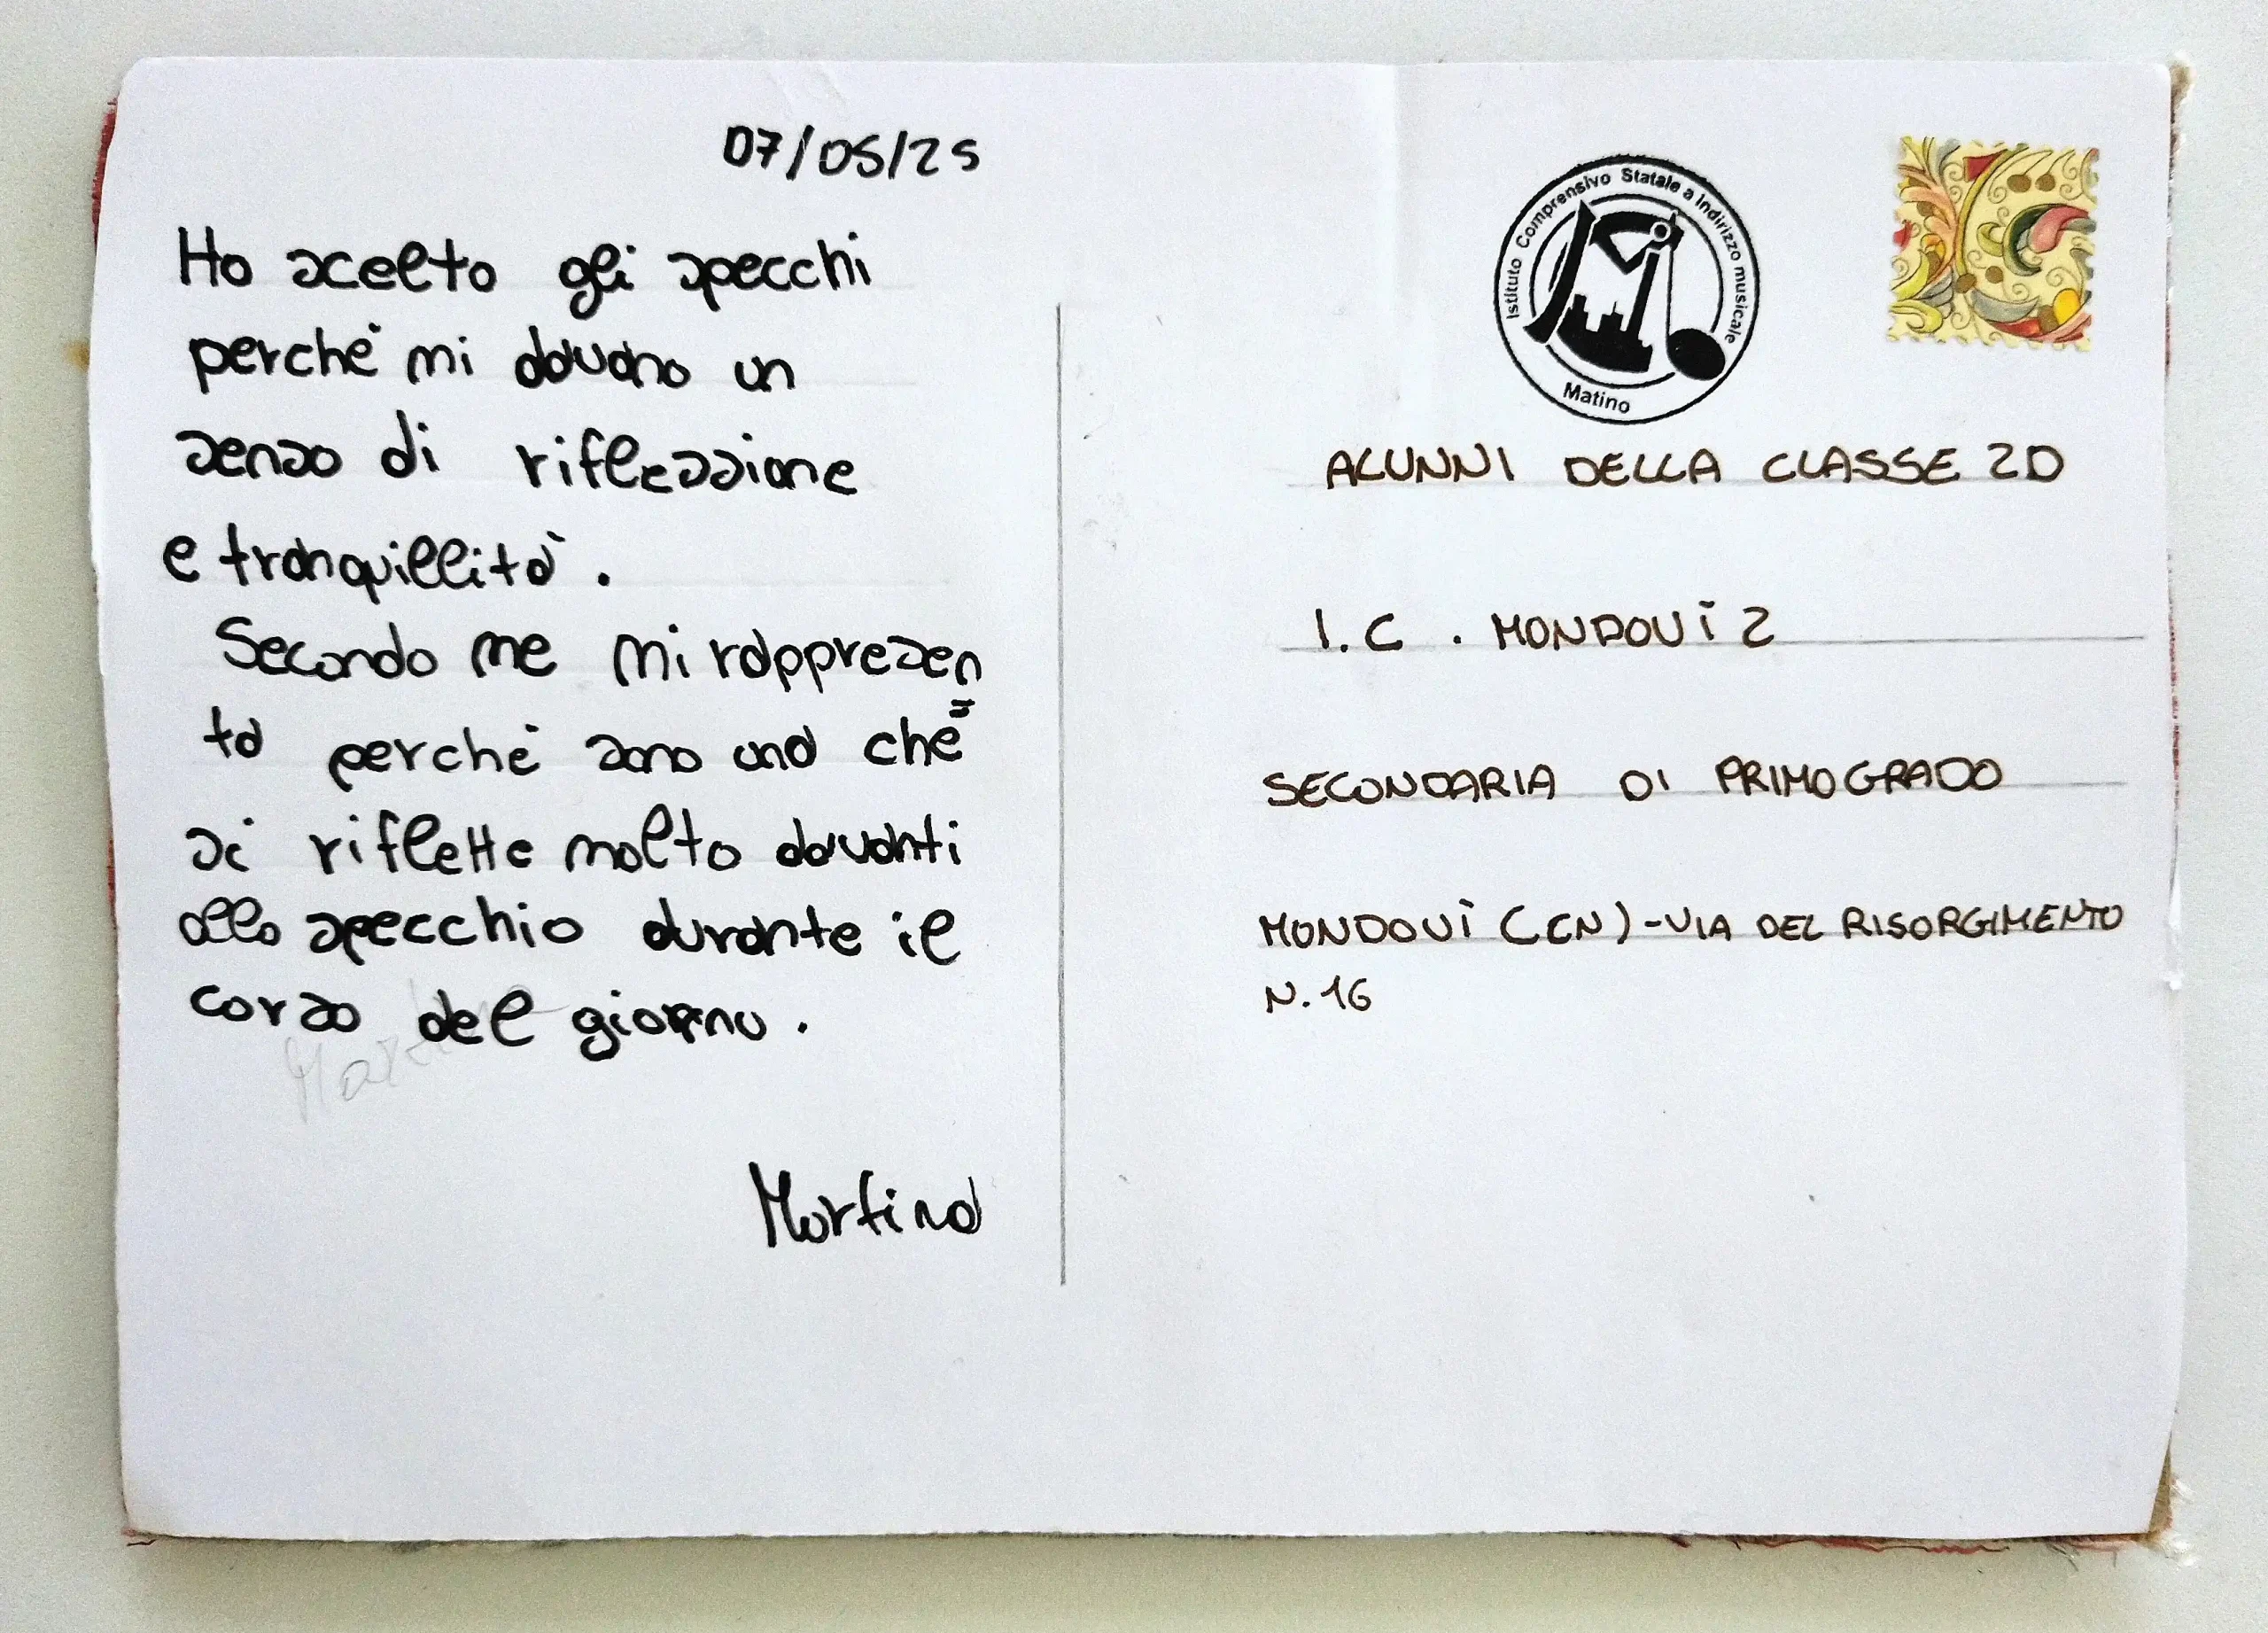 07/05/25
Ho scelto gli specchi
perché mi davano un
senso di riflessione
e tranquillità.
Secondo me mi rappresen=
ta perché sono una che
si riflette molto davanti
allo specchio durante il
corso del giorno.
Martina
Istituto Comprensivo Statale a Indirizzo musicale
Matino
ALUNNI DELLA CLASSE 2D
I.C. MONDOVÌ 2
SECONDARIA DI PRIMO GRADO
MONDOVÌ (CN) - VIA DEL RISORGIMENTO
N. 16